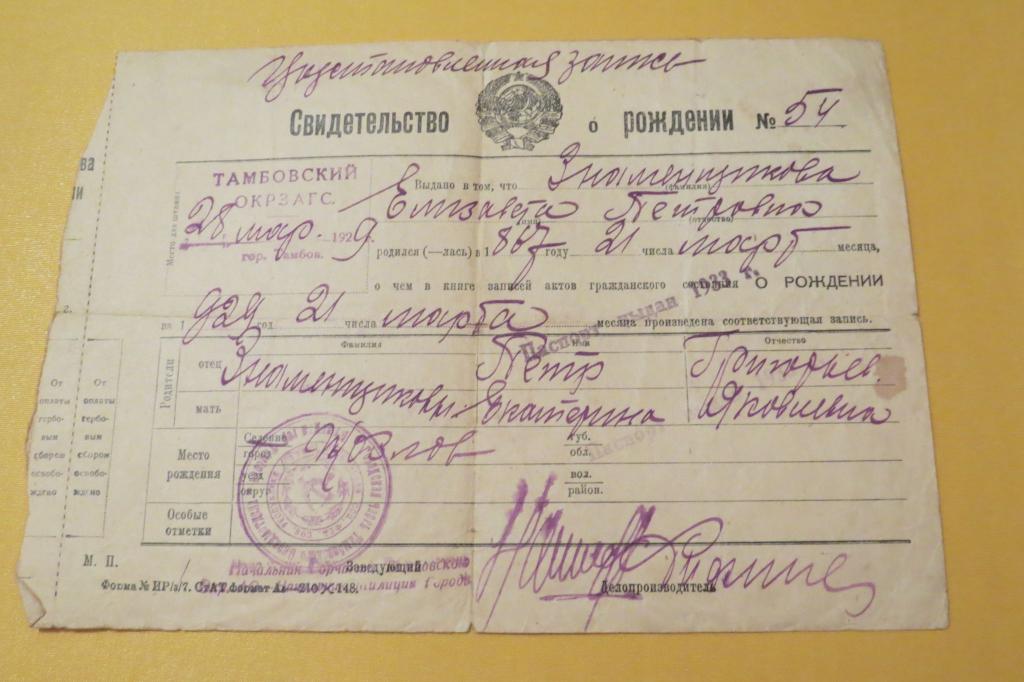 Восстановленная запись
Свидетельство о рождении № 54
ТАМБОВСКИЙ
ОКРЗАГС.
28 мар. 1929
гор. Тамбов.
Место для штампа
Выдано в том, что Знаменщикова
(фамилия)
Елизавета Петровна
(имя) (отчество)
родился (—лась) в 1887 году 21 числа март месяца,
о чем в книге записей актов гражданского состояния О РОЖДЕНИИ
Паспорт выдан 1933 г.
за 1929 год 21 числа марта месяца произведена соответствующая запись.
Фамилия Имя Отчество
Родители
отец Знаменщиковы Петр Григорьев.
мать Екатерина Яковлевна
Место рождения
Селение
город Козлов
уезд
округ
губ.
обл.
Паспорт
вол.
район.
Особые отметки
М. П.
Заведующий
Начальник
милиции города
Делопроизводитель
Форма № ИР/з/7. СтАТ. Формат А5 —210×148.
ва
ли
2.
От
оплаты
гербо-
вым
сбором
освобо-
ждено
От
оплаты
гербо-
вым
сбором
освобо-
ждено